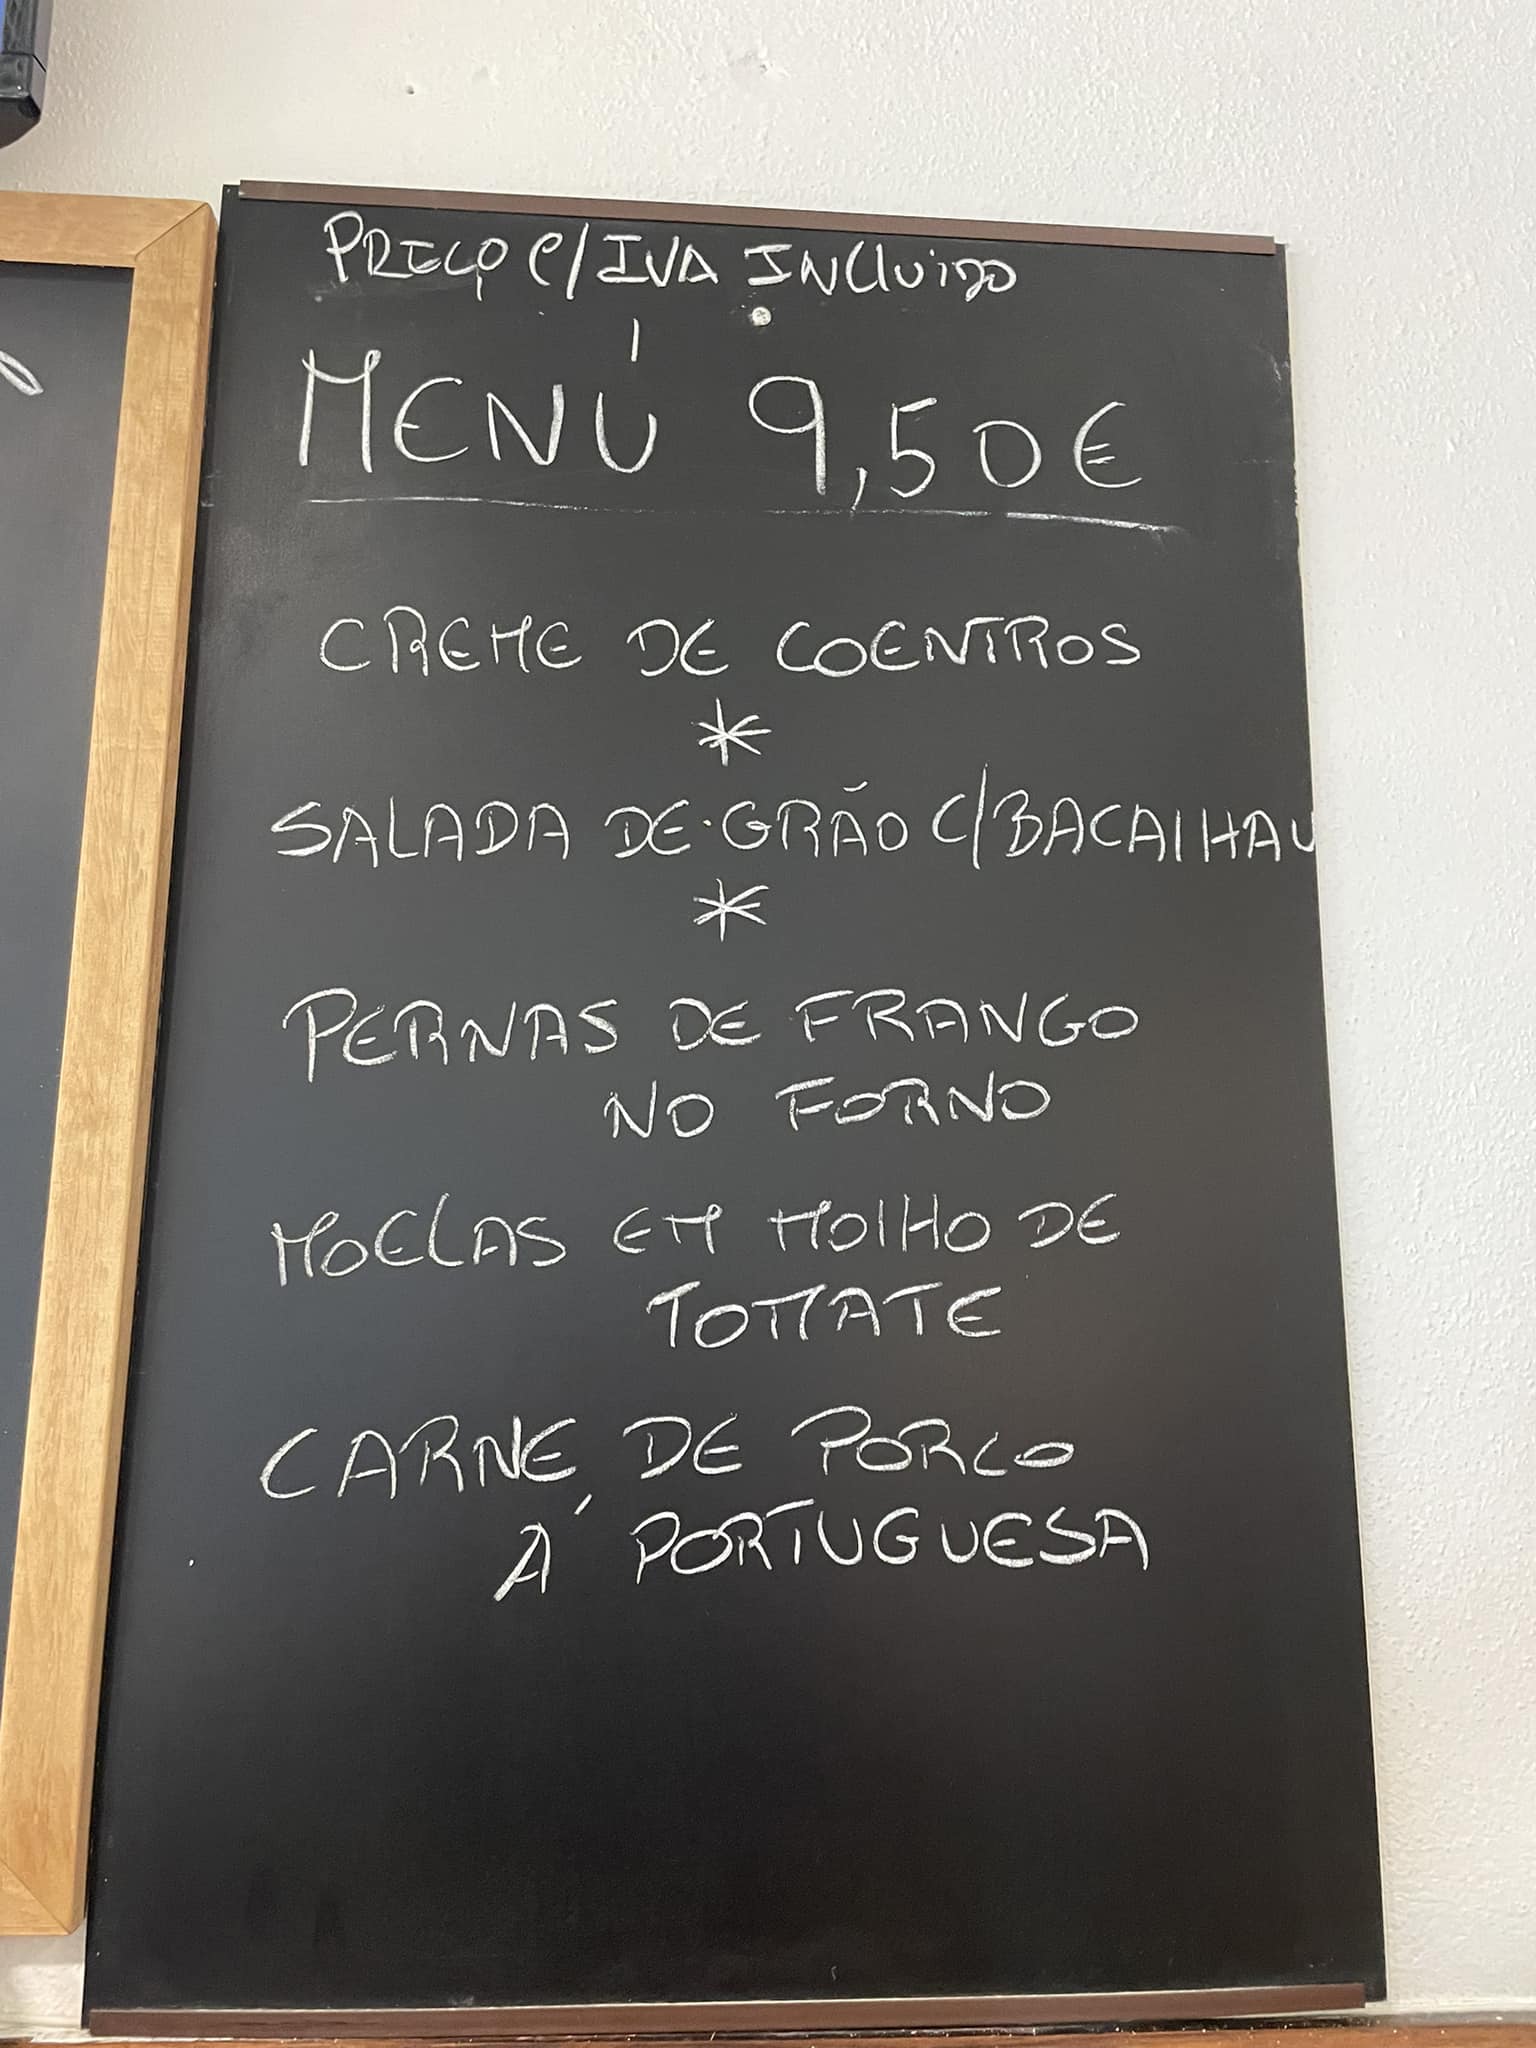 PREÇO C/IVA INCLUIDO
MENÚ 9,50€
CREME DE COENTROS
*
SALADA DE GRÃO C/BACALHAU
*
PERNAS DE FRANGO
NO FORNO
MOELAS EM MOLHO DE
TOMATE
CARNE DE PORCO
Á PORTUGUESA